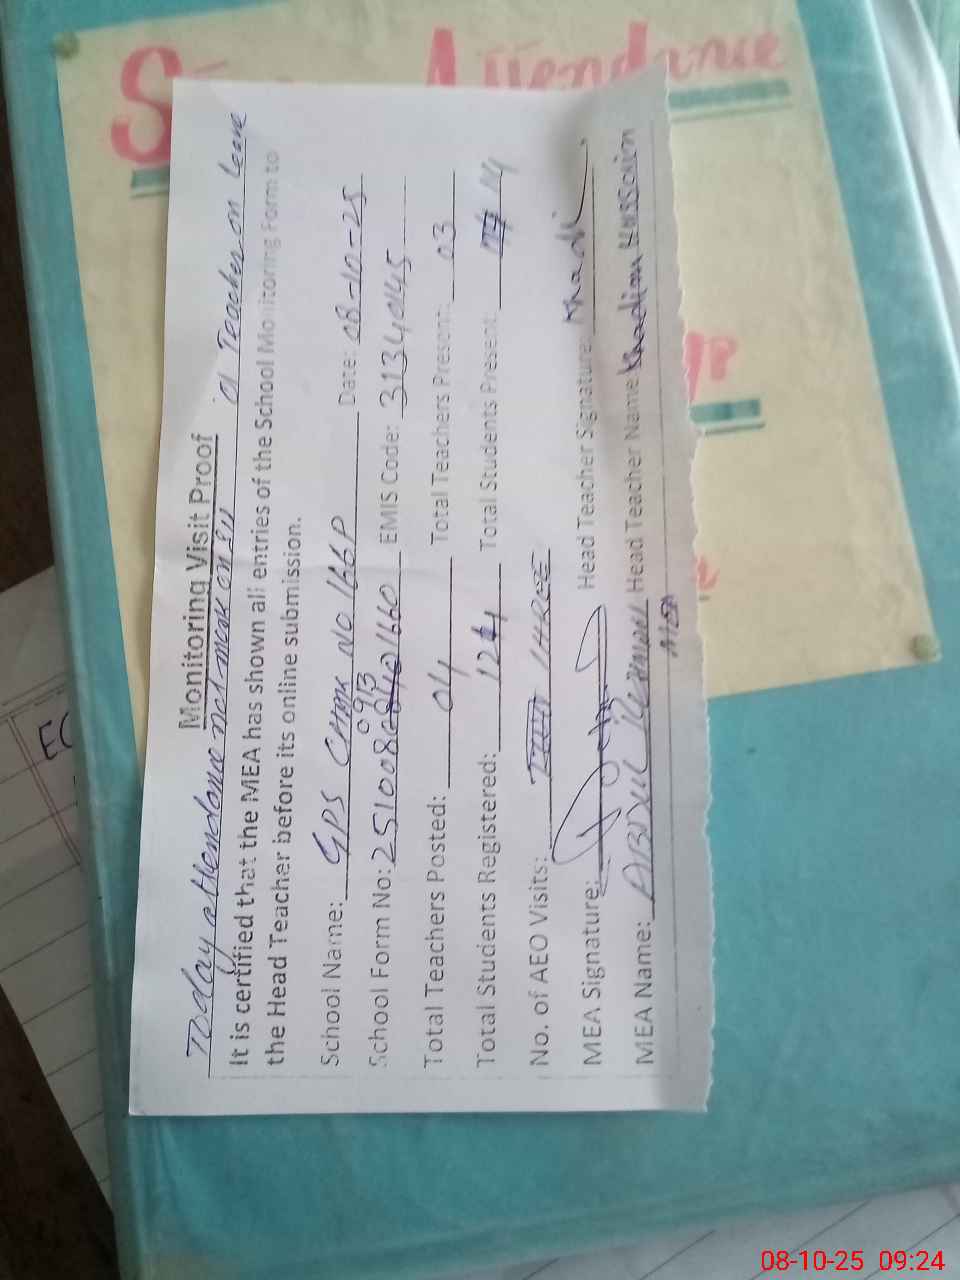 Attendance
Monitoring Visit Proof
Today attendance not mark on 01 Teacher on Leave
It is certified that the MEA has shown all entries of the School Monitoring Form to
the Head Teacher before its online submission.
School Name: GPS CHAK NO 166P Date: 08-10-25
093
School Form No: 251008 1660 EMIS Code: 31340145
Total Teachers Posted: 04 Total Teachers Present: 03
Total Students Registered: 124 Total Students Present: 114
No. of AEO Visits: THREE
MEA Signature: Head Teacher Signature: Khadi
MEA Name: ABDUL Head Teacher Name: Khadim Hussain
MEA
08-10-25 09:24